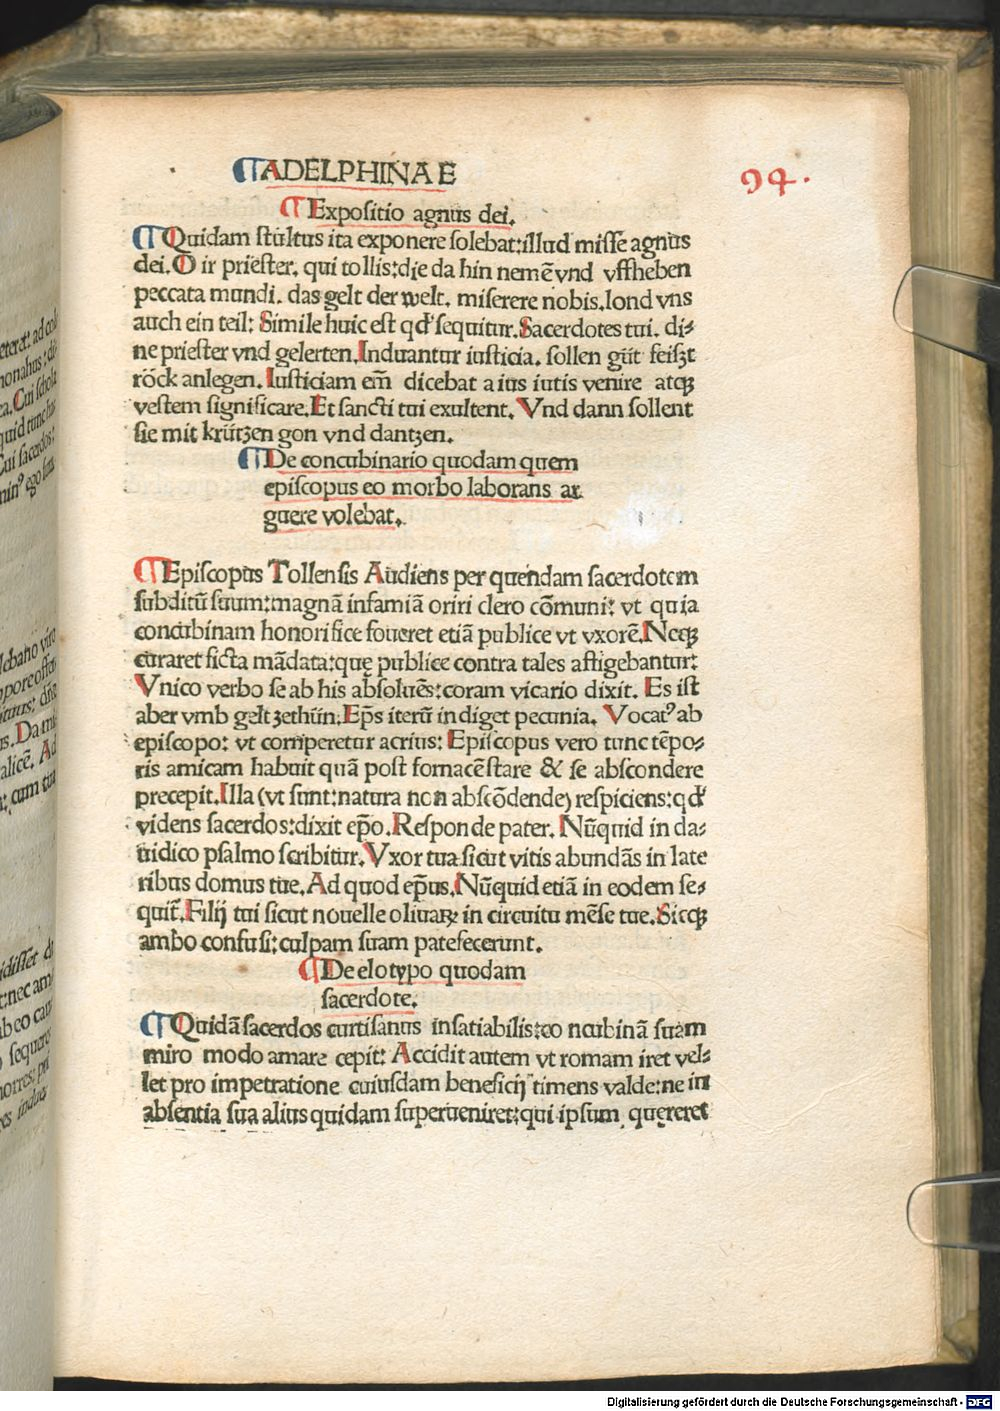 ¶ADELPHINAE
94.
¶Expositio agnus dei.
¶Quidam ſtultus ita exponere ſolebat:illud miſſe agnus
dei.O ir prieſter. qui tollis:die da hin nemē vnd vffheben
peccata mundi. das gelt der welt. miſerere nobis.lond vns
auch ein teil: Simile huic eſt qđ ſequitur.Sacerdotes tui. di⸗
ne prieſter vnd gelerten.Induantur iuſticia. ſollen gůt feiſʒt
röck anlegen.Iuſticiam em̄ dicebat a ius iutis venire atqꝫ
veſtem ſignificare.Et ſancti tui exultent.Vnd dann ſollent
ſie mit krützen gon vnd dantzen.
¶De concubinario quodam quem
epiſcopus eo morbo laborans ar
guere volebat.
¶Epiſcopus Tollenſis Audiens per quendam ſacerdotem
ſubditū ſuum:magnā infamiā oriri clero cōmuni: vt quia
concubinam honorifice foueret etiā publice vt vxorē.Neqꝫ
curaret ficta mādata:quę publice contra tales affigebantur:
Vnico verbo ſe ab his abſoluēs:coram vicario dixit. Es iſt
aber vmb gelt zethün.Ep̄s iterū indiget pecunia. Vocatꝰ ab
epiſcopo: vt corriperetur acrius: Epiſcopus vero tunc tēpo⸗
ris amicam habuit quā poſt fornacē ſtare & ſe abſcondere
precepit.Illa (vt ſunt:natura non abſcōdende) reſpiciens:qđ
videns ſacerdos:dixit ep̄o.Reſponde pater. Nūquid in da⸗
uidico pſalmo ſcribitur.Vxor tua ſicut vitis abundās in late
ribus domus tue.Ad quod ep̄us.Nūquid etiā in eodem ſe⸗
quit̄.Filij tui ſicut nouelle oliuaꝝ in circuitu mēſe tue.Sicqꝫ
ambo confuſi:culpam ſuam patefecerunt.
¶De elotypo quodam
ſacerdote.
¶Quidā ſacerdos curtiſanus inſatiabilis:concubinā ſuam
miro modo amare cepit: Accidit autem vt romam iret vel⸗
let pro impetratione cuiuſdam beneficij timens valde:ne in
abſentia ſua alius quidam ſuperueniret:qui ipſum quęreret
Digitalisierung gefördert durch die Deutsche Forschungsgemeinschaft - DFG